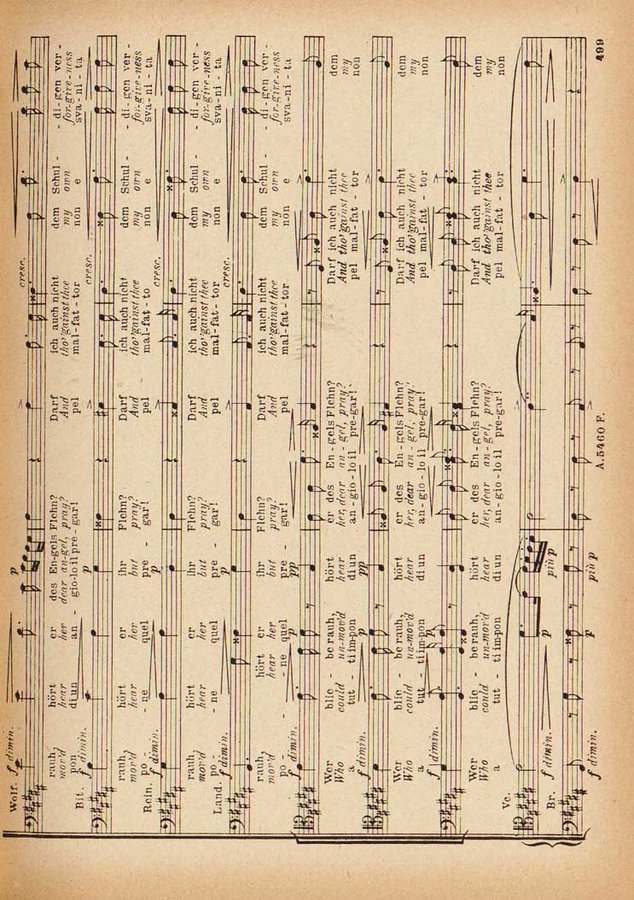 Wolf.
f dimin.
p
cresc.
rauh, hört er des Engels Flehn? Darf ich auch nicht dem Schul - - di-gen ver-
mov'd hear her dear an-gel, pray? And tho' 'gainst thee my own for-give-ness
pon di un an - gio-lo il pre-gar! pel mal-fat-tor non e sva-ni-ta
Bit.
f dimin.
p
cresc.
rauh, hört er ihr Flehn? Darf ich auch nicht dem Schul - - di-gen ver-
mov'd hear her but pray? And tho' 'gainst thee my own for-give-ness
po - ne quel pre - gar! pel mal-fat-to non e sva-ni-ta
Rein.
f dimin.
p
cresc.
rauh, hört er ihr Flehn? Darf ich auch nicht dem Schul - - di-gen ver-
mov'd hear her but pray? And tho' 'gainst thee my own for-give-ness
po - ne quel pre - gar! pel mal-fat-tor non e sva-ni-ta
Land.
f dimin.
p
cresc.
rauh, hört er ihr Flehn? Darf ich auch nicht dem Schul - - di-gen ver-
mov'd hear her but pray? And tho' 'gainst thee my own for-give-ness
po - ne quel pre - gar! pel mal-fat-tor non e sva-ni-ta
f dimin.
p
pp
Wer blie - be rauh, hört er des En-gels Flehn? Darf ich auch nicht dem
Who could un-mov'd hear her, dear an-gel, pray? And tho' 'gainst thee my
a tut - ti im pon di un an-gio-lo il pre-gar! pel mal-fat-tor non
f dimin.
p
pp
Wer blie - be rauh, hört er des En-gels Flehn? Darf ich auch nicht dem
Who could un-mov'd hear her, dear an-gel, pray? And tho' 'gainst thee my
a tut - ti im pon di un an-gio-lo il pre-gar! pel mal-fat-tor non
f dimin.
Wer blie - be rauh, hört er des En-gels Flehn? Darf ich auch nicht dem
Who could un-mov'd hear her, dear an-gel, pray? And tho' 'gainst thee my
a tut - ti im pon di un an-gio-lo il pre-gar! pel mal-fat-tor non
Vc.
Br.
f dimin.
p
più p
f dimin.
p
più p
A. 5460 F.
499